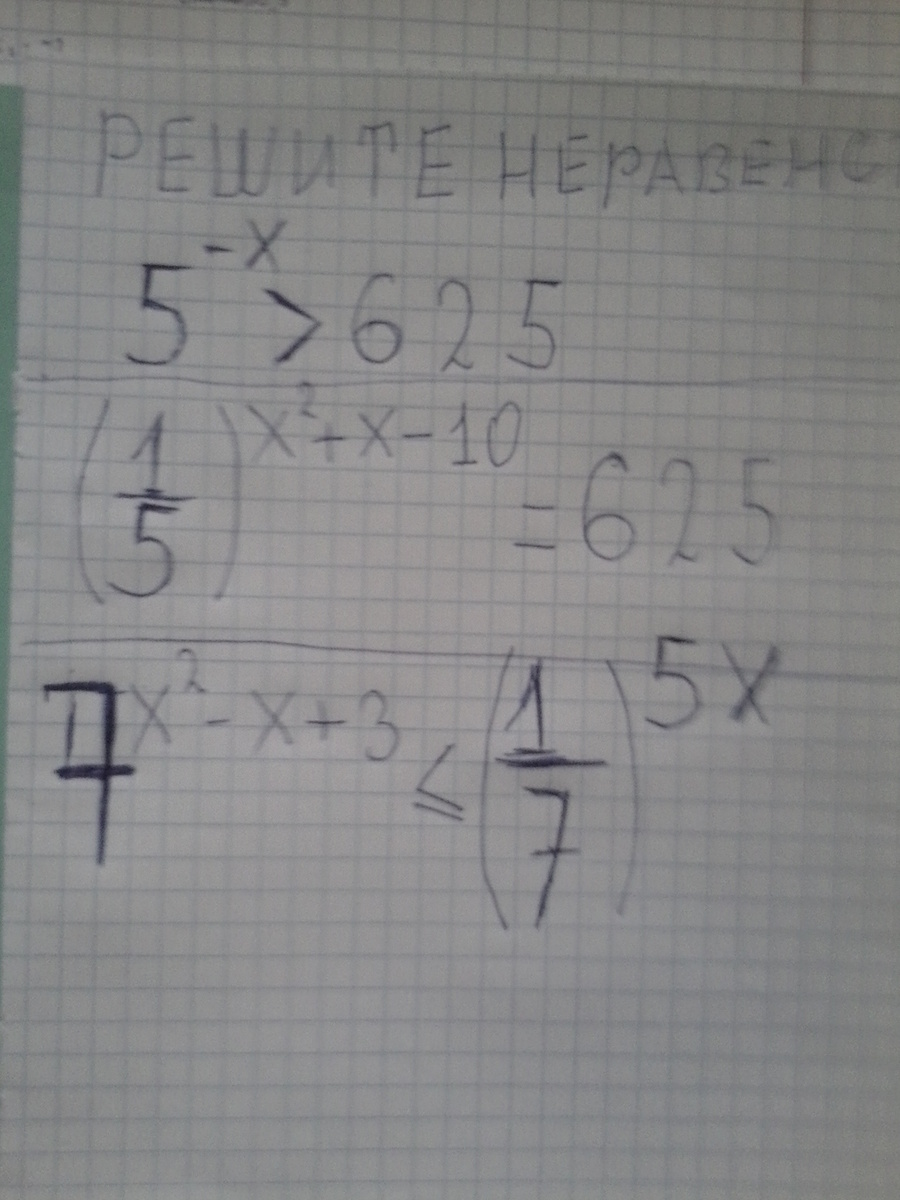 РЕШИТЕ НЕРАВЕНС
5^{-x} > 625
(1/5)^{x²+x-10} = 625
7^{x²-x+3} ≤ (1/7)^{5x}